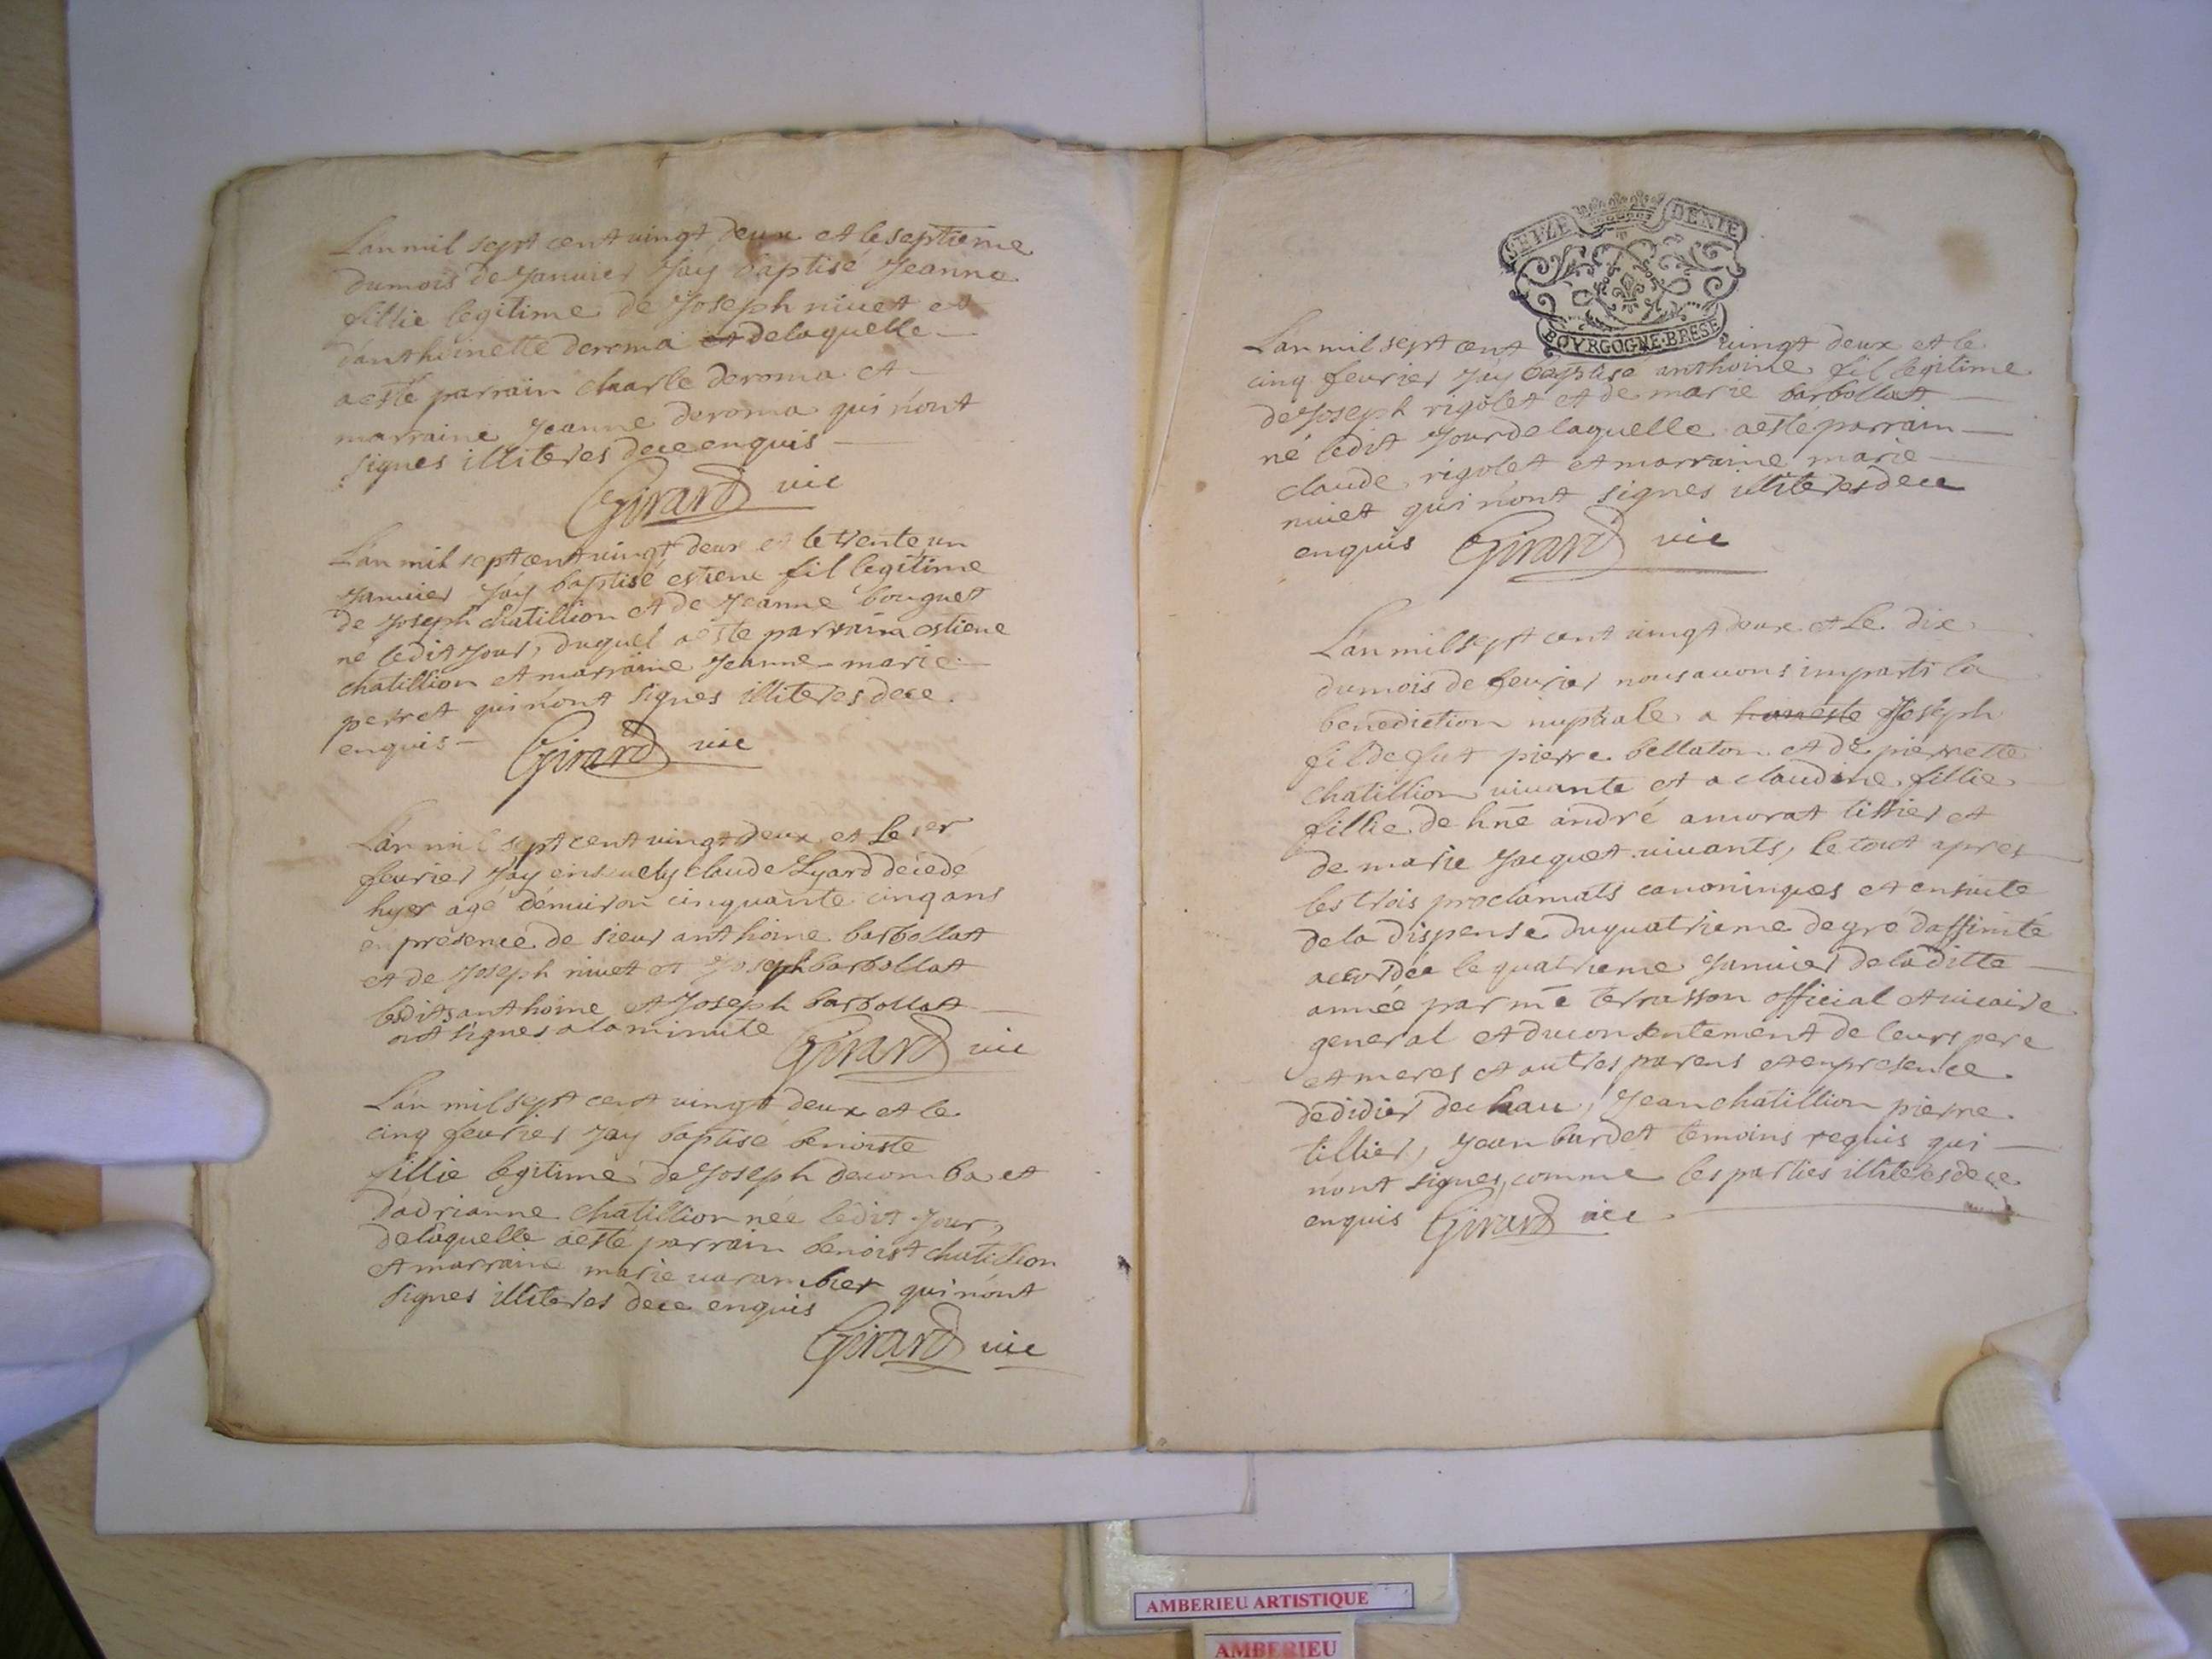 L'an mil sept cent vingt deux et le septieme
du mois de Januier J'ay baptisé Jeanne
fillie legitime de Joseph niuet et
d'anthoinette deroma et de laquelle
a esté parrain charle deroma et
marraine Jeanne deroma qui n'ont
signes illiteres de ce enquis
Girard vic
L'an mil sept cent vingt deux et le trente un
Januier J'ay baptisé estiene fil legitime
de Joseph chatillion et de Jeanne bouguet
né ledit Jour, duquel a esté parrain estiene
chatillion et marraine Jeanne marie
perret qui n'ont signes illiteres de ce
enquis Girard vic
L'an mil sept cent vingt deux et le 1er
feurier J'ay enseuely claude Lyard decedé
hyer agé d'enuiron cinquante cinq ans
en presence de sieur anthoine barbollat
et de Joseph niuet et Joseph barbollat
lesdits anthoine et Joseph barbollat
ont signes a la minute Girard vic
L'an mil sept cent vingt deux et le
cinq feurier J'ay baptisé benoiste
fillie legitime de Joseph decomba et
d'adrianne chatillion née ledit Jour,
de laquelle a esté parrain benoist chatillion
et marraine marie uarambier qui n'ont
signes illiteres de ce enquis
Girard vic
SEIZE DENIE
BOVRGOGNE·BRESE
L'an mil sept cent vingt deux et le
cinq feurier J'ay baptise anthoine fil legitime
de Joseph rigolet et de marie barbollat
né ledit Jour de laquelle a esté parrain
claude rigolet et marraine marie
niuet qui n'ont signes illiteres de ce
enquis Girard vic
L'an mil sept cent vingt deux et Le dix
du mois de feurier nous auons imparti la
benediction nuptiale a honneste Joseph
fil de fut pierre bellaton et de pierrette
chatillion uiuante et a claudine fillie
fillie de hne andré amorat tissier et
de marie Jacquet uiuants, le tout apres
les trois proclamats canoninques et ensuite
de la dispense du quatrieme degré d'affinité
accordée le quatrieme Januier de la ditte
année par me terrasson official et uicaire
general et du consentement de leurs pere
et meres et autres parens et en presence
de didier dechau, Jean chatillion pierre
tillier, Jean burdet temoins requis qui
n'ont signes, comme les parties illiteres de ce
enquis Girard vic
AMBERIEU ARTISTIQUE
AMBERIEU